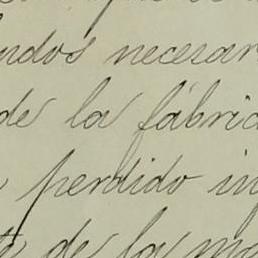 ndos necesar
de la fábric
perdido in
de la ma